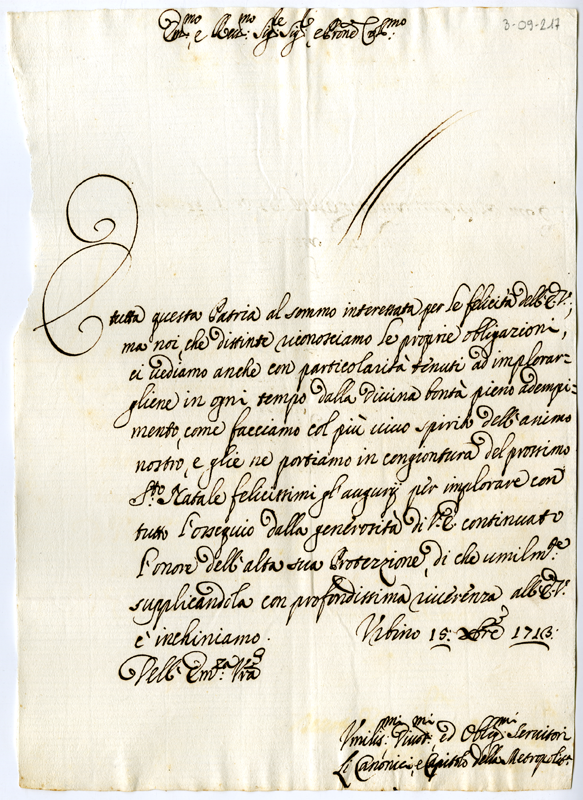 3-09-217
Em.mo, e Rev.mo Sig.re Sig.re, e Pron Col.mo
È tutta questa Patria al sommo interessata per le felicità dell'E.V.,
ma noi, che distinte riconosciamo le proprie obligazioni,
ci vediamo anche con particolarità tenuti ad implorar-
gliene in ogni tempo dalla divina bontà pieno adempi-
mento, come facciamo col più vivo spirito dell'animo
nostro, e glie ne portiamo in congiontura del prossimo
S.to Natale felicissimi gl'augurij per implorare con
tutto l'ossequio dalla generosità di V.E. continuato
l'onore dell'alta sua Protezzione, di che umilm.te
supplicandola con profondissima riverenza all'E.V.
c'inchiniamo.
Urbino 15: Xbre 1713:
Dell'Em.za V.ra
Umilis.mi Divot.mi ed Oblig.mi Servitori
Li Canonici, e Capitolo della Metropolit.